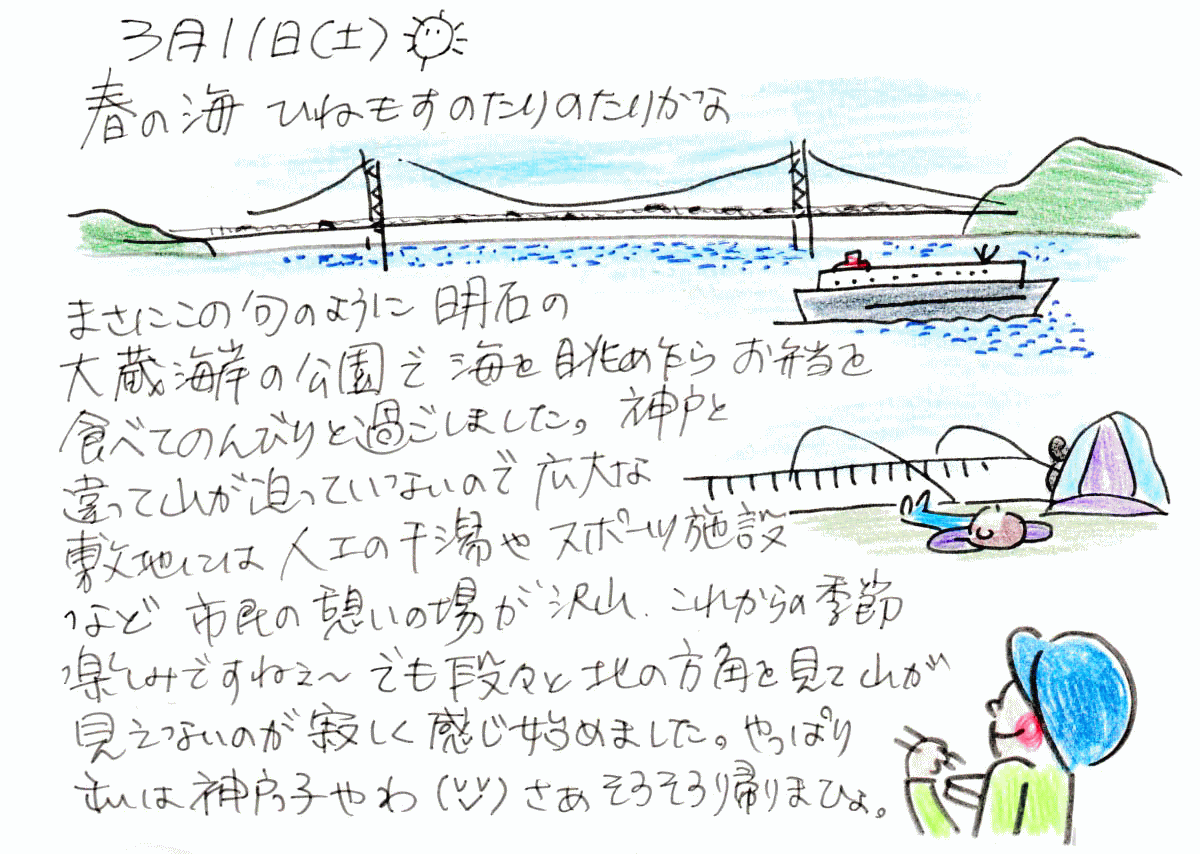 3月11日(土)
春の海 ひねもすのたりのたりかな
まさにこの句のように 明石の
大蔵海岸の公園で 海を眺め乍ら お弁当を
食べてのんびりと過ごしました。神戸と
違って山が迫っていないので 広大な
敷地には 人工の干潟や スポーツ施設
など 市民の憩いの場が沢山、これからの季節
楽しみですねェ〜 でも段々と北の方角を見て山が
見えないのが寂しく感じ始めました。やっぱり
私は神戸っ子やわ (^^) さあ そろそろ帰りまひょ。